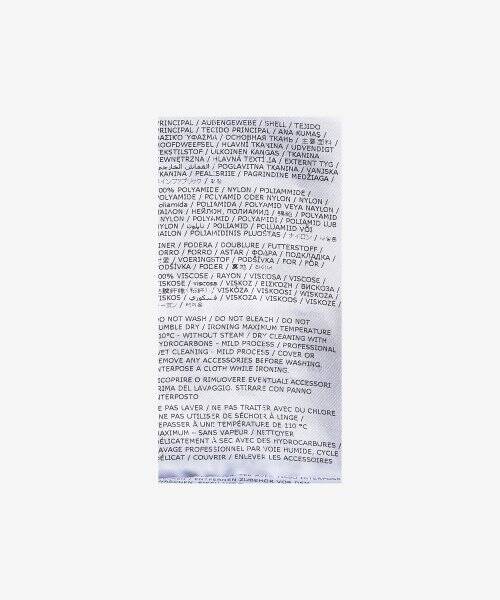 PRINCIPAL / AUßENGEWEBE / SHELL / TEJIDO
PRINCIPAL / TECIDO PRINCIPAL / ANA KUMAŞ /
ΒΑΣΙΚΟ ΥΦΑΣΜΑ / ОСНОВНАЯ ТКАНЬ / 主要面料 /
HOOFDWEEFSEL / HLAVNÍ TKANINA / UDVENDIGT
TEKSTILSTOF / ULKOINEN KANGAS / TKANINA
ZEWNĘTRZNA / HLAVNÁ TEXTÍLIA / EXTERNT TYG /
/ POGLAVITNA TKANINA / VANJSKA
TKANINA / PEALSRIIE / PAGRINDINĖ MEDŽIAGA /
100% POLYAMIDE / NYLON / POLIAMMIDE /
POLYAMIDE / POLYAMID ODER NYLON / NYLON /
Poliamida / POLIAMIDA / POLİAMİD VEYA NAYLON /
НЕЙЛОН, ПОЛИАМИД / 锦纶 / POLYAMID
NYLON / POLYAMID / POLYAMIDI / POLIAMID LUB
NYLON / POLIAMID / POLÜAMIID VÕI
NAILON / POLIAMIDINIS PLUOŠTAS / ナイロン /
LINER / FODERA / DOUBLURE / FUTTERSTOFF /
FORRO / FORRO / ASTAR / ΦΟΔΡΑ / ПОДКЛАДКА /
/ VOERINGSTOF / PODŠÍVKA / FOR / FÓR /
PODŠÍVKA / FODER / 裏地 /
100% VISCOSE / RAYON / VISCOSA / VISCOSE /
VISKOSE / viscosa / VISKOZ / ΒΙΣΚΟΖΗ / ВИСКОЗА /
/ VISKOZA / VISKOOSI / WISKOZA /
VISKOS / / VISKOZA / VISKOOS / VISKOZĖ /
DO NOT WASH / DO NOT BLEACH / DO NOT
TUMBLE DRY / IRONING MAXIMUM TEMPERATURE
110°C - WITHOUT STEAM / DRY CLEANING WITH
HYDROCARBONE - MILD PROCESS / PROFESSIONAL
WET CLEANING - MILD PROCESS / COVER OR
REMOVE ANY ACCESSORIES BEFORE WASHING.
INTERPOSE A CLOTH WHILE IRONING.
RICOPRIRE O RIMUOVERE EVENTUALI ACCESSORI
PRIMA DEL LAVAGGIO. STIRARE CON PANNO
INTERPOSTO
NE PAS LAVER / NE PAS TRAITER AVEC DU CHLORE
/ NE PAS UTILISER DE SÉCHOIR À LINGE /
REPASSER À UNE TEMPÉRATURE DE 110 °C
MAXIMUM – SANS VAPEUR / NETTOYER
DÉLICATEMENT À SEC AVEC DES HYDROCARBURES /
LAVAGE PROFESSIONNEL PAR VOIE HUMIDE, CYCLE
DÉLICAT / COUVRIR / ENLEVER LES ACCESSOIRES